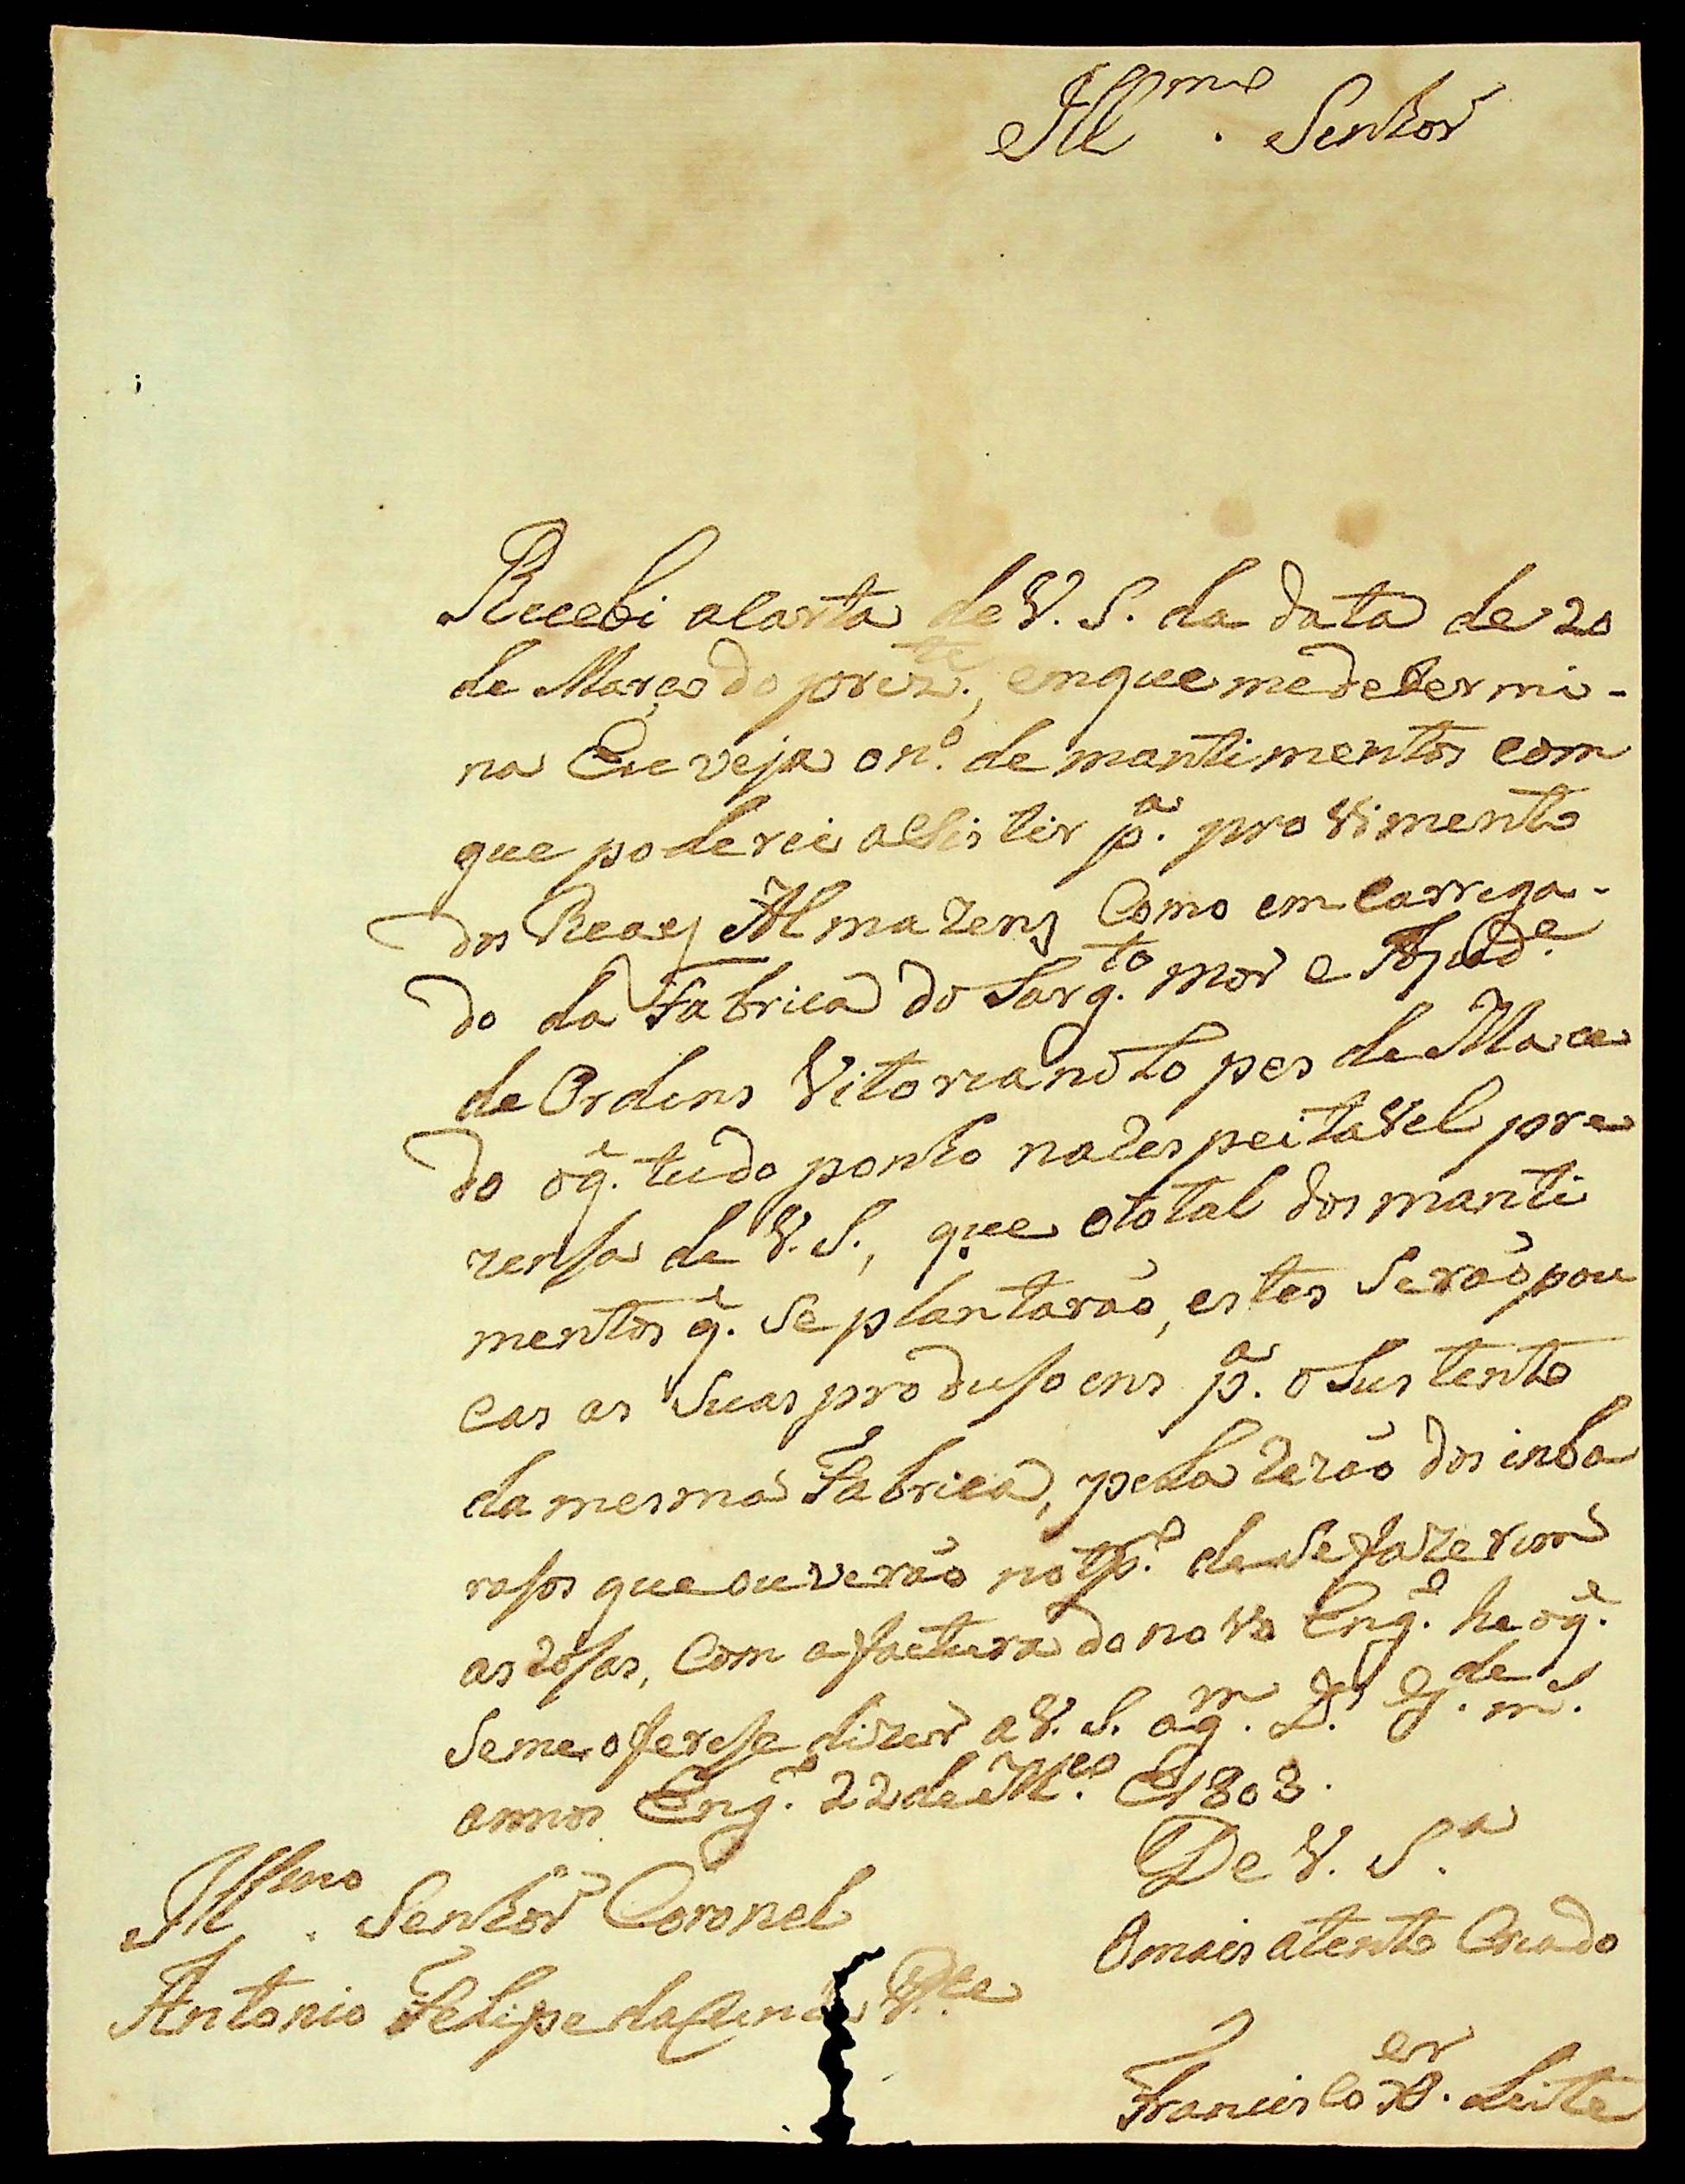 Ill.mo Senhor
Recebi a Carta de V. S. da data de 20
de Março do prez.te, em que me determi-
na Eu veja o n.o de mantimentos com
que poderei assistir p.a provimento
dos Reaes Almazens Como emcarrega-
do da Fabrica do Sarg.to mor e Ajud.e
de Ordens Vitoriano Lopes de Mace
do o q̃. tudo ponho na respeitavel pre
zensa de V. S., que o total dos manti
mentos q̃. se plantarão, estes Serão pou
cas as Suas produsoens p.a o Sustento
da mesma Fabrica, pela rezão dos inba
rasos que ouverão no tp.o de se fazerem
as rosas, Com a factura do novo Eng.o he o q̃.
se me oferese dizer a V. S. a q.m D.s g.de m.s
annos Eng.o 22 de M.ço de 1803.
De V. S.a
O mais atento Criado
Ill.mo Senhor Coronel
Antonio Felipe da Cunha P.te
Francisco X.er Leite